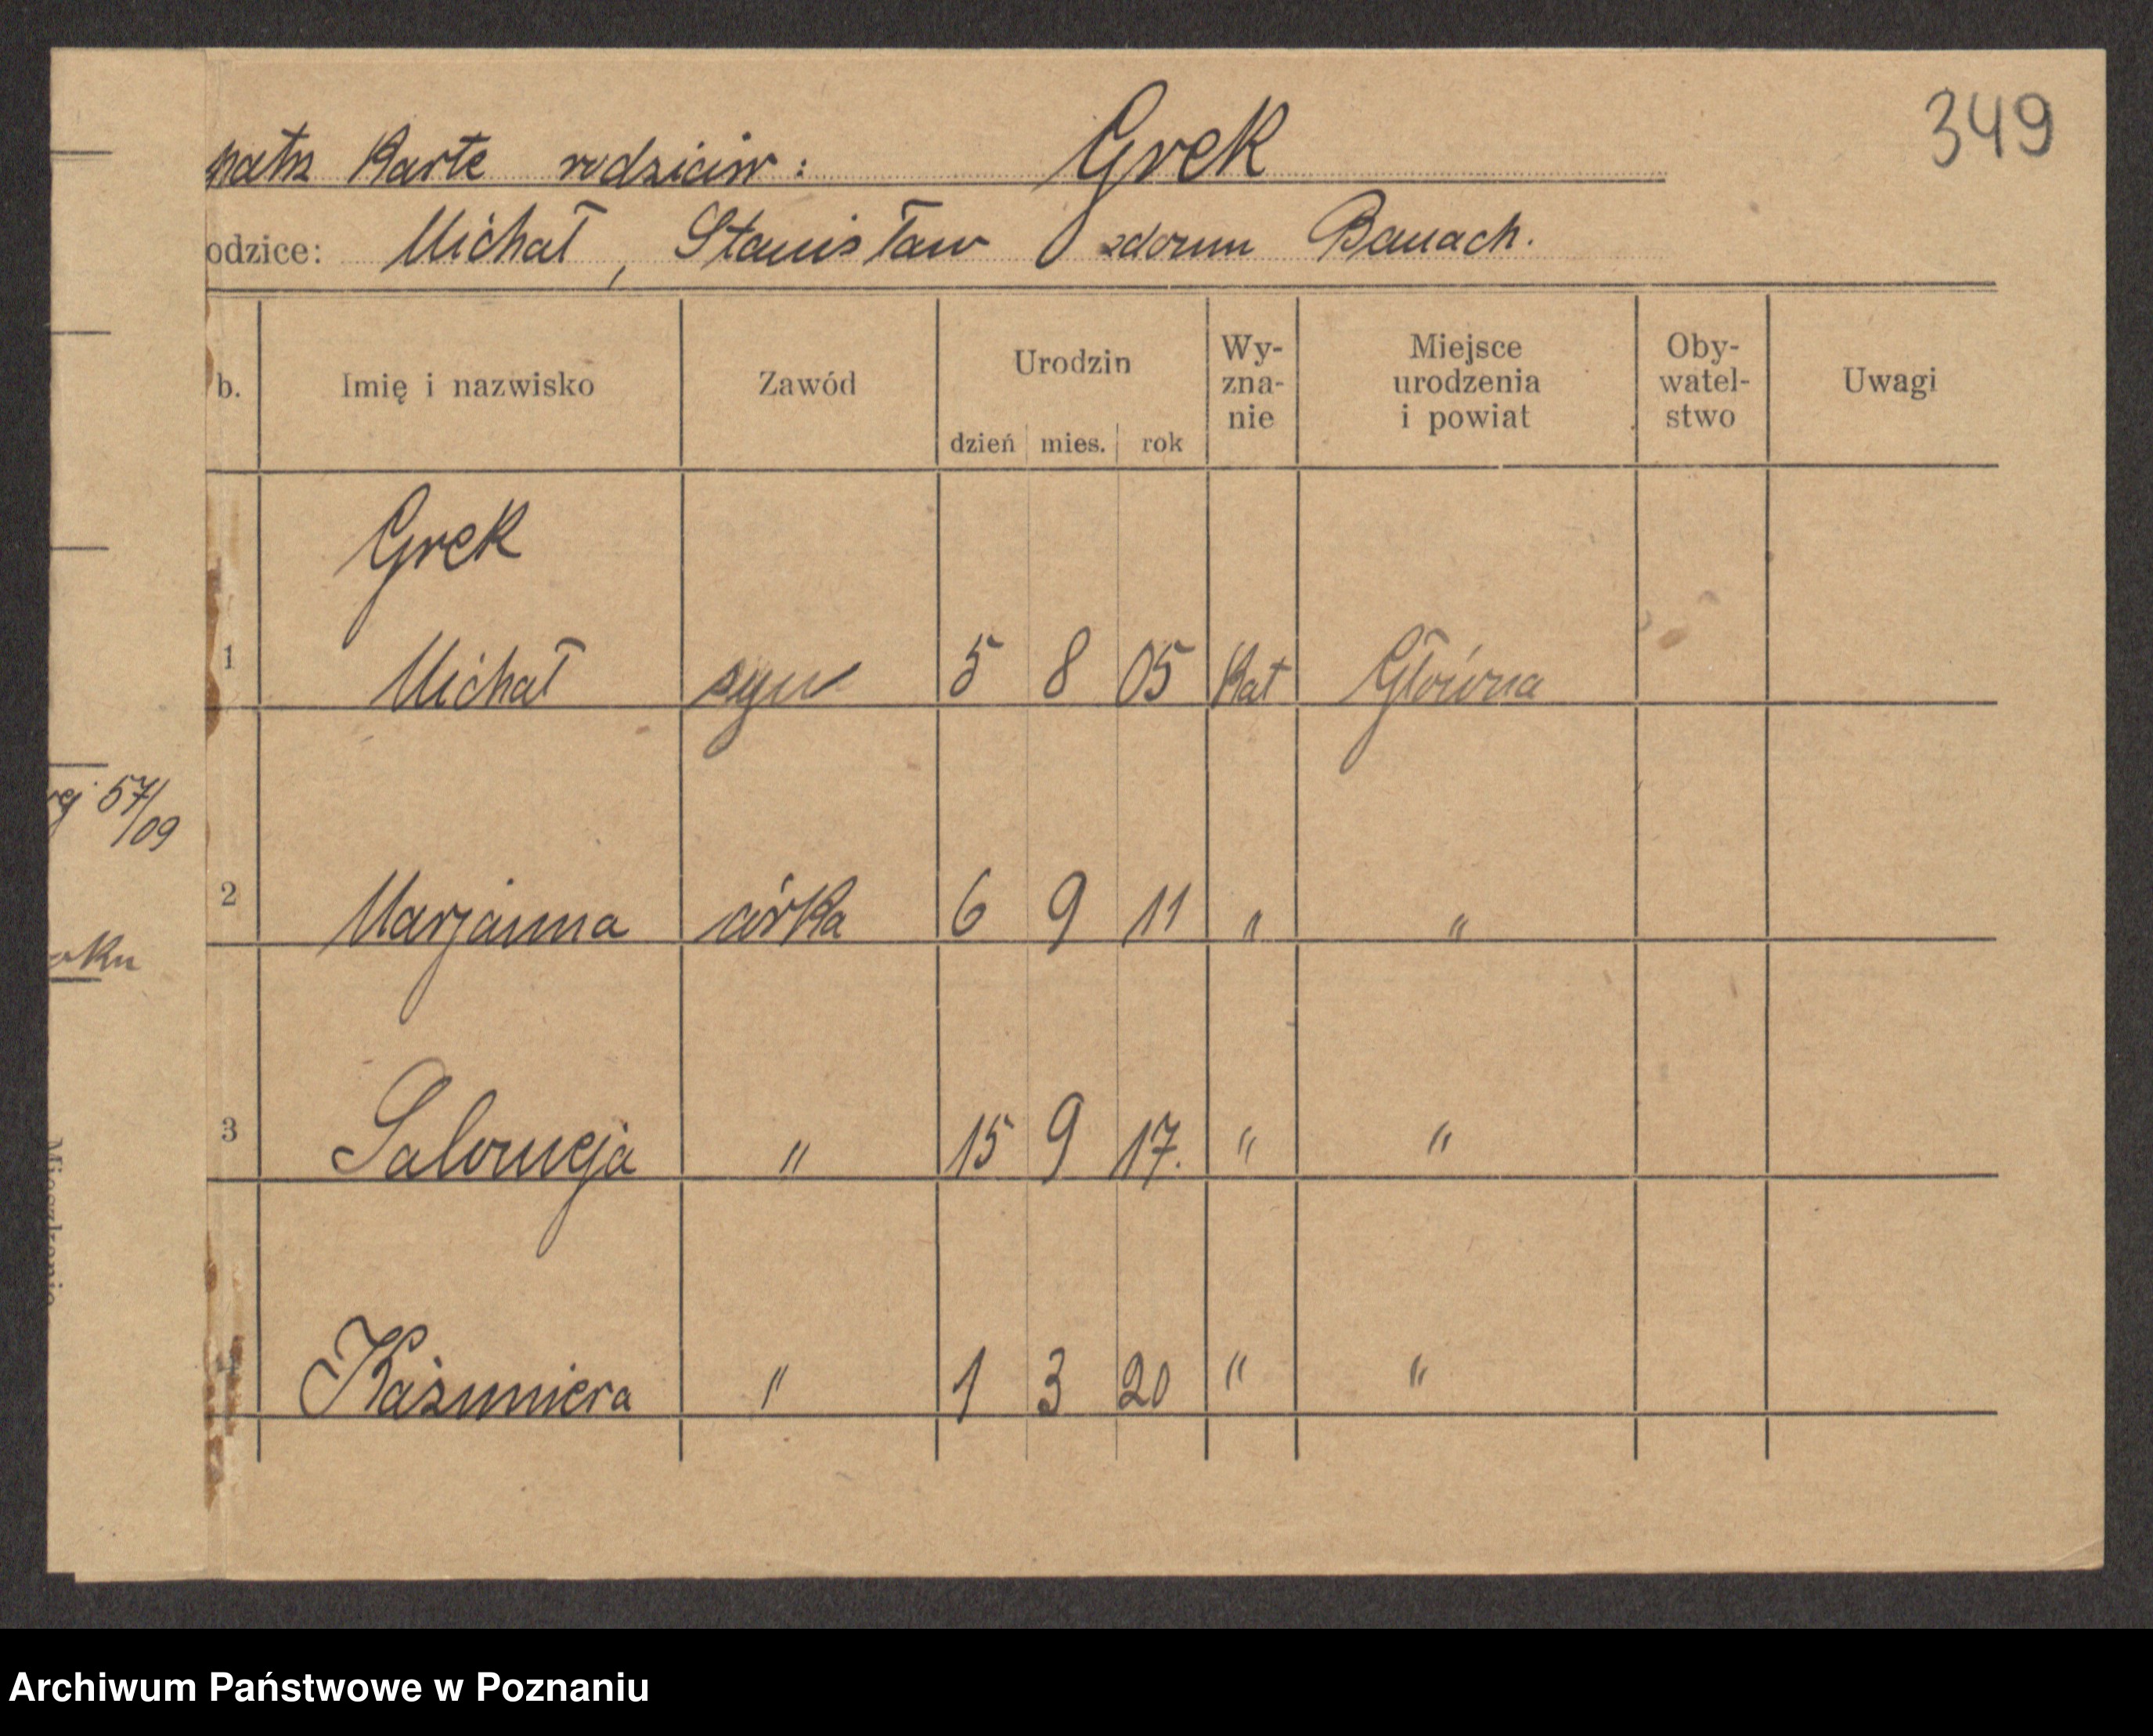 349
patrz Karte rodziców: Grek
odzice: Michał, Stanisław zdomu Banach.
b. Imię i nazwisko Zawód Urodzin dzień mies. rok Wy-zna-nie Miejsce urodzenia i powiat Oby-watel-stwo Uwagi
Grek
1 Michał syn 5 8 05 Kat Główna
57/09
2 Marjanna córka 6 9 11 " "
3 Salomeja " 15 9 17. " "
Kaźimiera " 1 3 20 " "
Archiwum Państwowe w Poznaniu